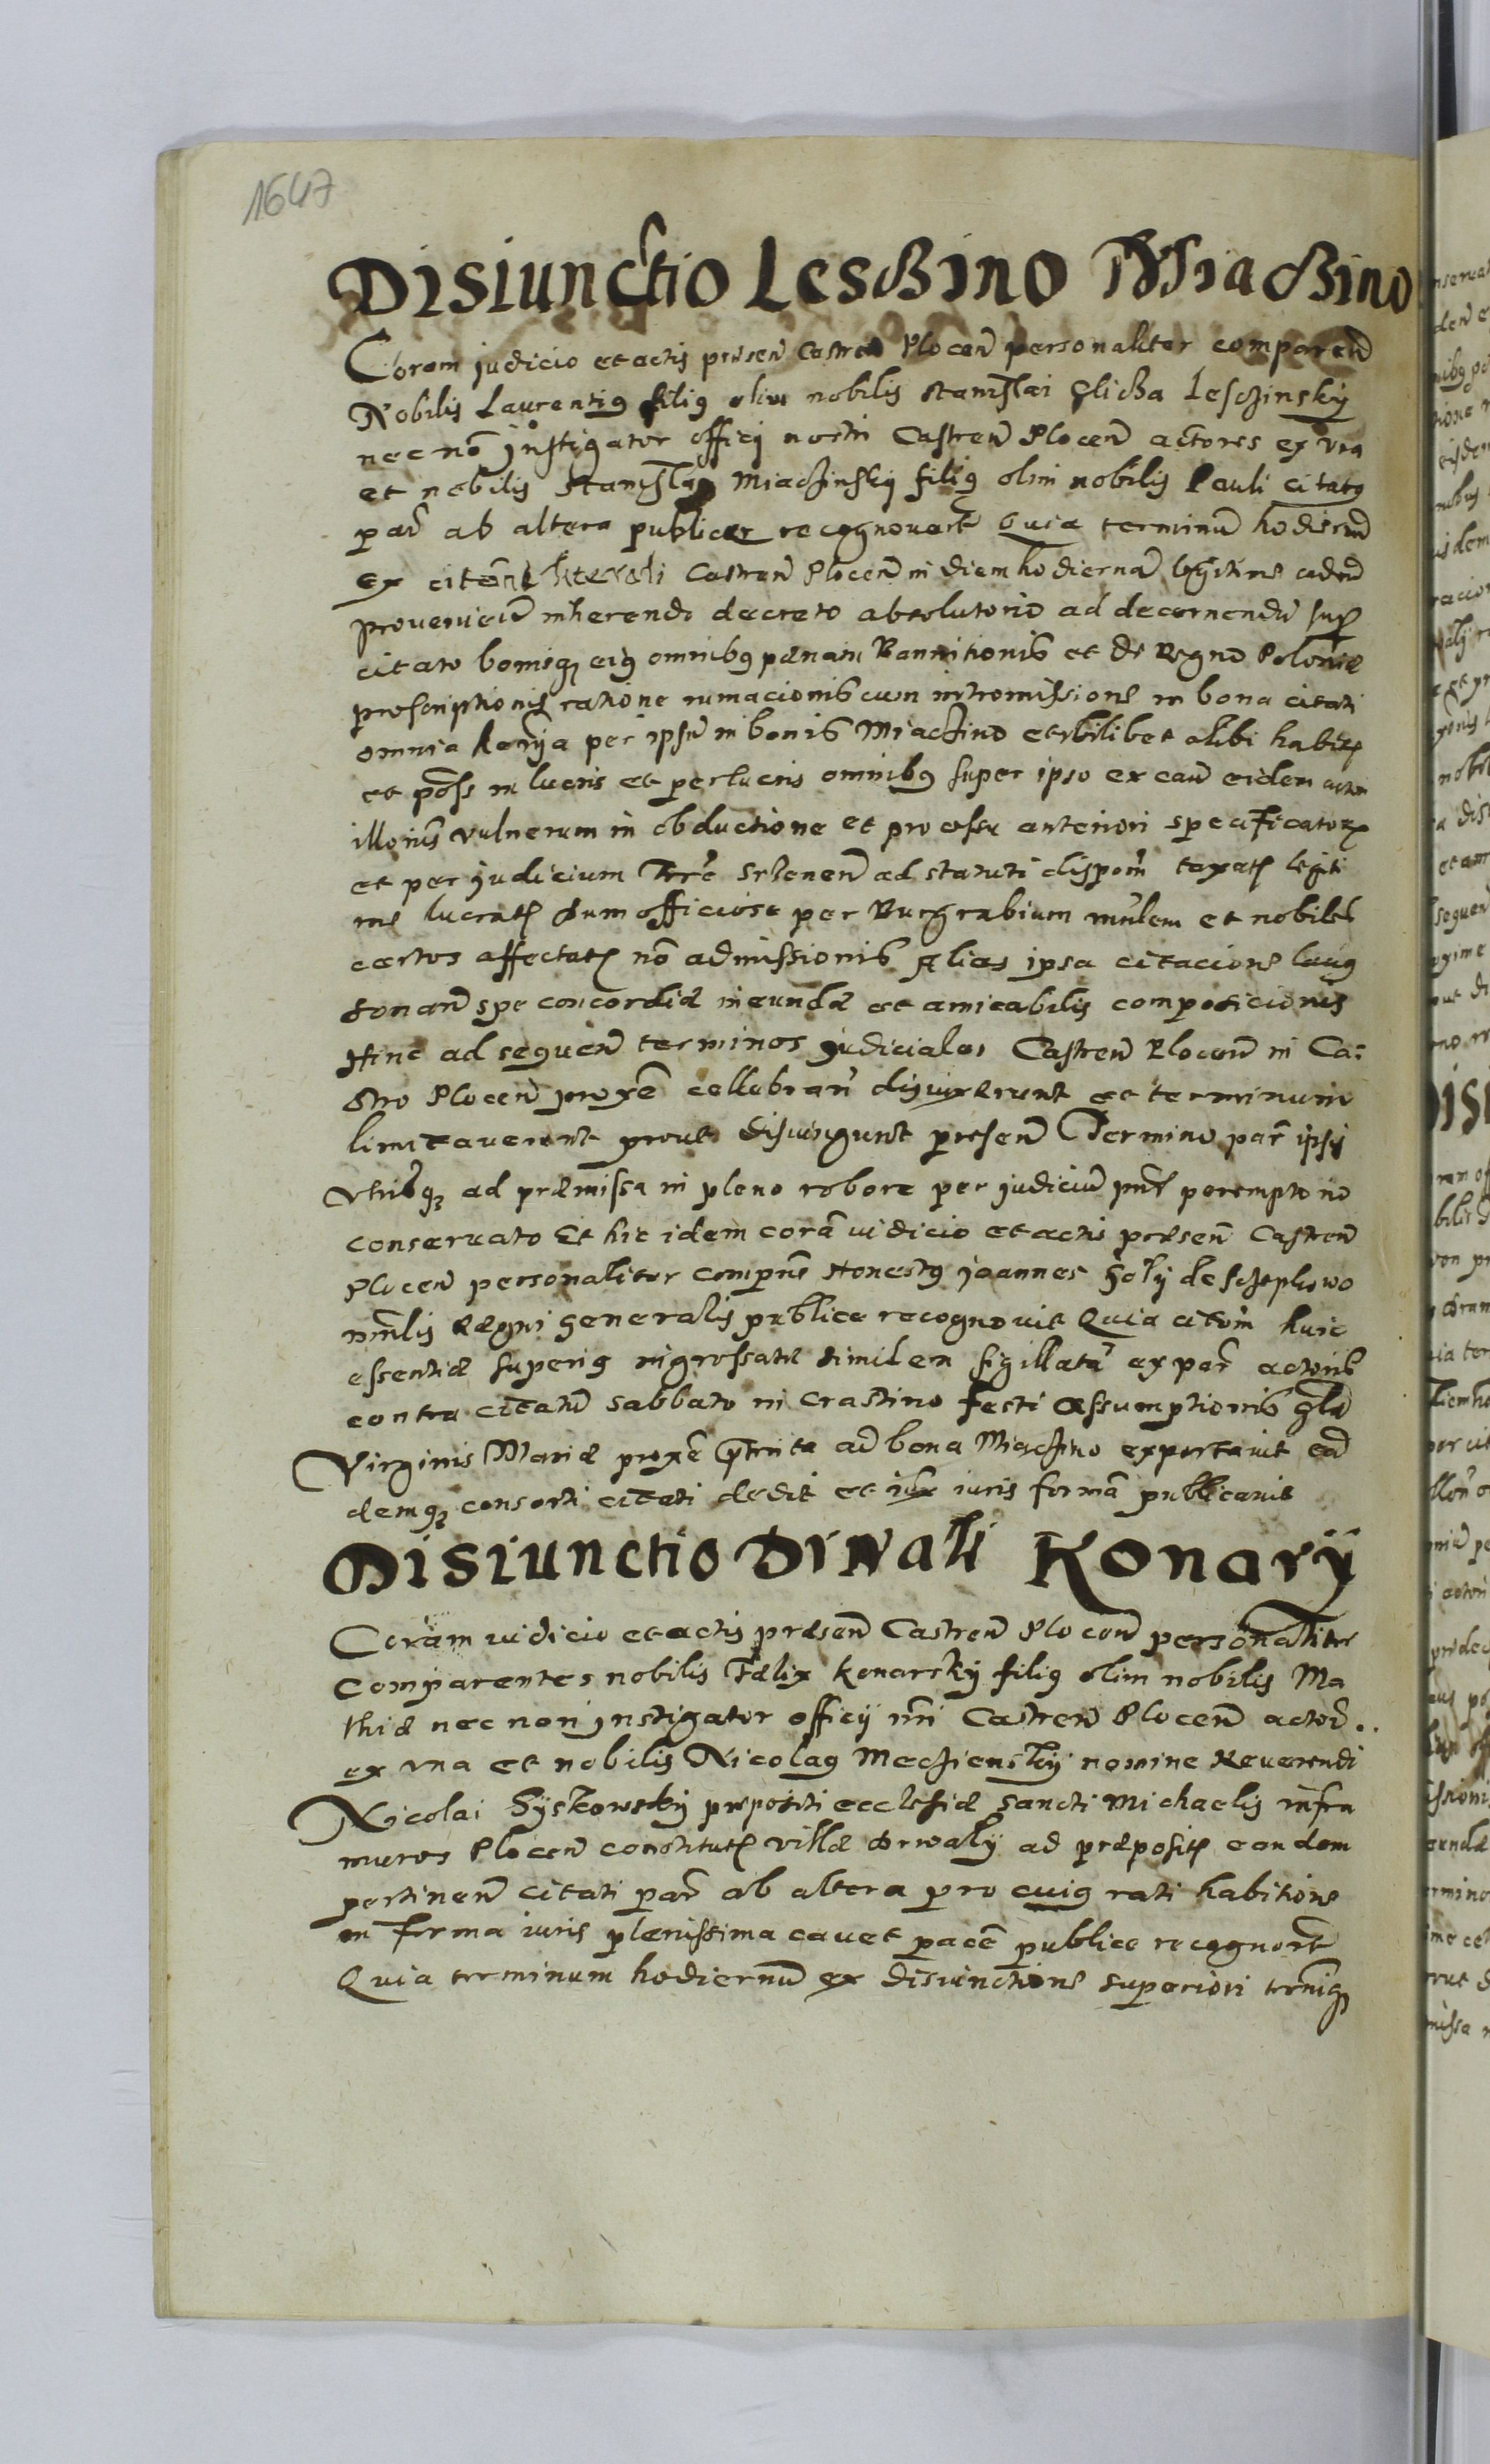 1647
Disiunctio Lesczino Miaczino
Coram judicio et actis præsen̄ Castren̄ Plocen̄ personaliter comparen̄
Nobilis Laurentig filig olim nobilis Stanislai Glicza Lesczinsky
nec nō instigator officij nostri Castren̄ Plocen̄ actores ex vna
et nobilis Stanislag Miaczinsky filig olim nobilis Pauli citatg
par̄ ab altera publicæ recognouert̄ Quia terminū hodiernū
ex citan̄e literali Castren̄ Plocen̄ in diem hodiernā legitime caden̄
provenien̄ inherendo decreto absolutorio ad decernendū sup̄
citato bonisqȝ eig omnibg pænam Bannitionis et de Regno Poloniæ
proscriptionis ratione rumacionis cum intromissione in bona citati
omnia per ipsū in bonis Miaczino et vbilibet alibi habit̄
et poss̄ in lucris et perlucris omnibg super ipso ex eaū eidem actori
illorūs vulnerum in obductione et processu anteriori specificator̄
et per judicium Trr̄e ad statuti disponm̄ taxat̄ legiti
me lucrat̄ Cum officiose per Burgrabium mn̄lem et nobiles
certos affectat̄ nō admissionis Alias ipsa citacione laūg
sonan̄ spe concordiæ ineundæ et amicabilis compositionis
Hinc ad sequen̄ terminos judiciales Castren̄ Plocen̄ in Ca:
stro Plocen̄ proxē cellebran̄ disiuxerunt et terminum
limitauerunt prout disiungunt præsen̄ Termino par̄ ipsis
vtrisqȝ ad præmissa in pleno robore per judiciū pn̄s peremptorio
conseruato Et hic idem corā judicio et actis præsen̄ Castren̄
Plocen̄ personaliter comparn̄s Honestg joannes Goly de Scheplowo
mn̄lis Regni generalis publice recognouit Quia citom̄ huic
essentiæ superig ingrossatæ similem sigillatā ex par̄ actoris
contra citatū sabbato in crastino festi Assumptionis gl̄æ
Virginis Mariæ proxē præterita ad bona Miaczino exportauit ead
demqȝ consorti citati dedit et iux̄ iuris formā publicauit
Disiunctio Drwali Konary
Coram judicio et actis præsen̄ Castren̄ Plocen̄ personaliter
Comparentes nobilis Fælix Konarsky filig olim nobilis Ma
thiæ nec non jnstigator officij nr̄i Castren̄ Plocen̄ actor̄..
ex vna et nobilis Nicolag Meczienskÿ nomine Reuerendi
Nicolai Syskowsky præpositi ecclesiæ sancti Michaelis infra
muros Plocen̄ constitut̄ villæ Drwaly ad præposit̄ eandem
pertinen̄ citati par̄ ab altera pro cuig rati habitione
in forma iuris plenissima cauet pacē publice recognort̄
Quia terminum hodiernū ex disiunctione superiori trmīg